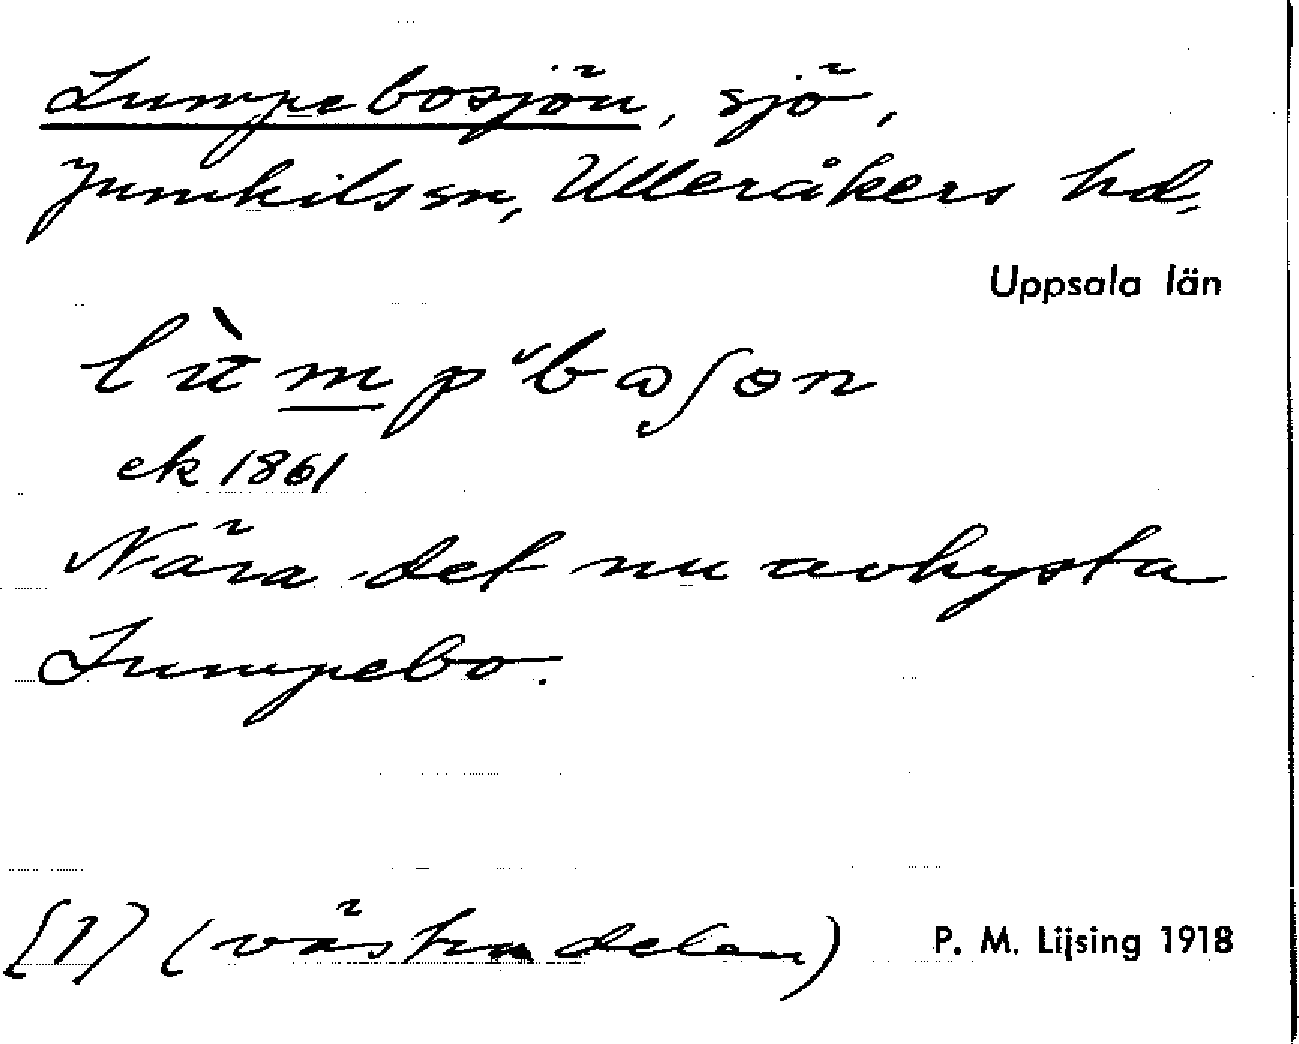 Lumpebosjön, sjö,
Jumkils sn, Ulleråkers hd,
Uppsala län
lùmpˇbɷʃɵn
ek 1861
Nära det nu avhysta
Lumpebo.
[1] (västra delen) P. M. Lijsing 1918